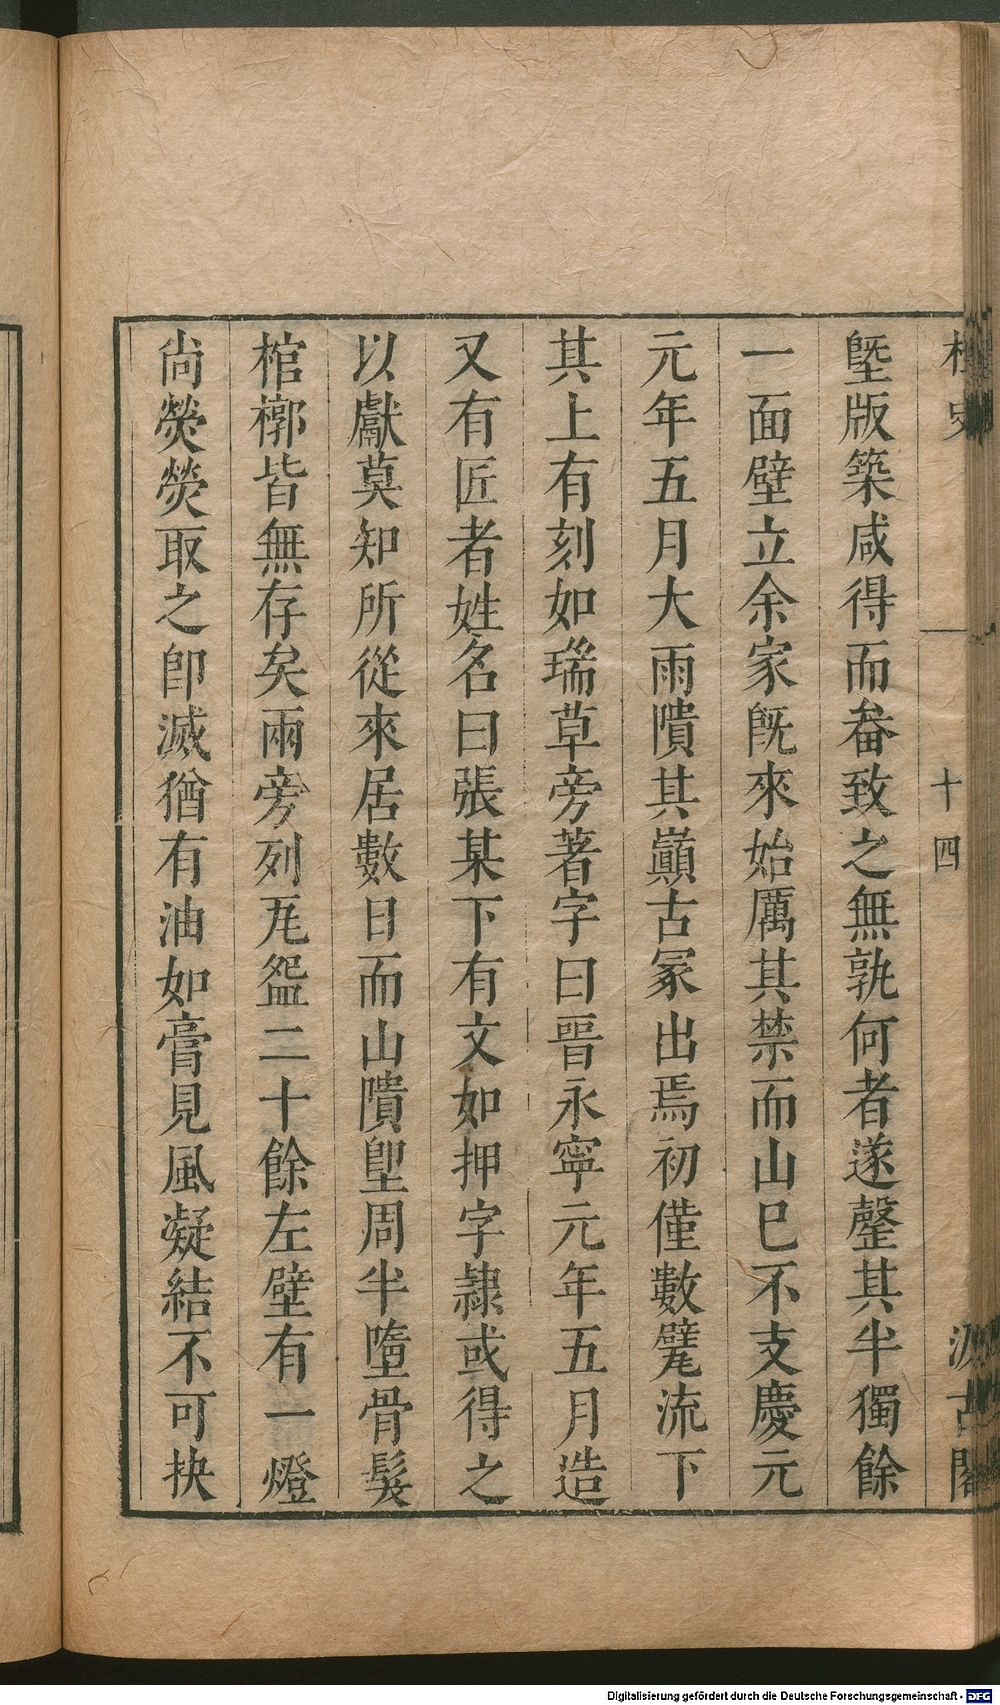 桯史
十四
汲古閣
墍版築咸得而畚致之無孰何者遂罄其半獨餘
一面壁立余家旣來始厲其禁而山巳不支慶元
元年五月大雨隤其巔古冢出焉初僅數甓流下
其上有刻如瑞草旁著字曰晉永寧元年五月造
又有匠者姓名曰張某下有文如押字隷或得之
以獻莫知所從來居數日而山隤堲周半墮骨髮
棺槨皆無存矣兩旁列瓦盌二十餘左壁有一燈
尚熒熒取之卽滅猶有油如膏見風凝結不可抉
Digitalisierung gefördert durch die Deutsche Forschungsgemeinschaft - DFG